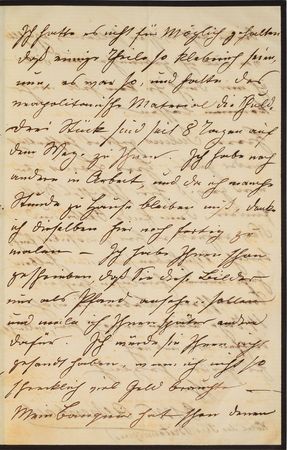 Ich hatte es nicht für Möglich gehalten
daß einige Theile so klebrich sein,
nun, es war so und hatte das
neapolitanische Material die Schuld.
Drei Stück sind seit 8 Tagen auf
dem Weg zu Ihnen. Ich habe noch
andere in Arbeit, und da ich manche
Stunde zu Hause bleiben muß, denke
ich dieselben hier noch fertig zu
malen — Ich habe Ihnen schon
geschrieben daß Sie diese Bilder
nur als Pfand ansehen sollen
und male ich Ihnen später andere
dafür. Ich würde sie Ihnen nicht
gesandt haben, wenn ich nicht so
schrecklich viel Geld brauchte —
Mein Banquier hat schon denen